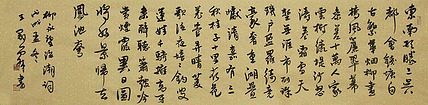 東南形勝三吳
都會錢塘自
古繁華烟柳畫
橋風簾翠幕
參差十萬人家
雲樹繞堤沙怒
濤卷霜雪天
塹無涯市列珠
璣户盈羅綺競
豪奢重湖疊
巘清嘉有三
秋桂子十里荷
花羌管弄晴菱
歌泛夜嬉嬉釣叟
蓮娃千騎擁高牙
乘醉聽簫鼓吟
賞煙霞異日圖
將好景歸去
鳳池夸
柳永望海潮詞